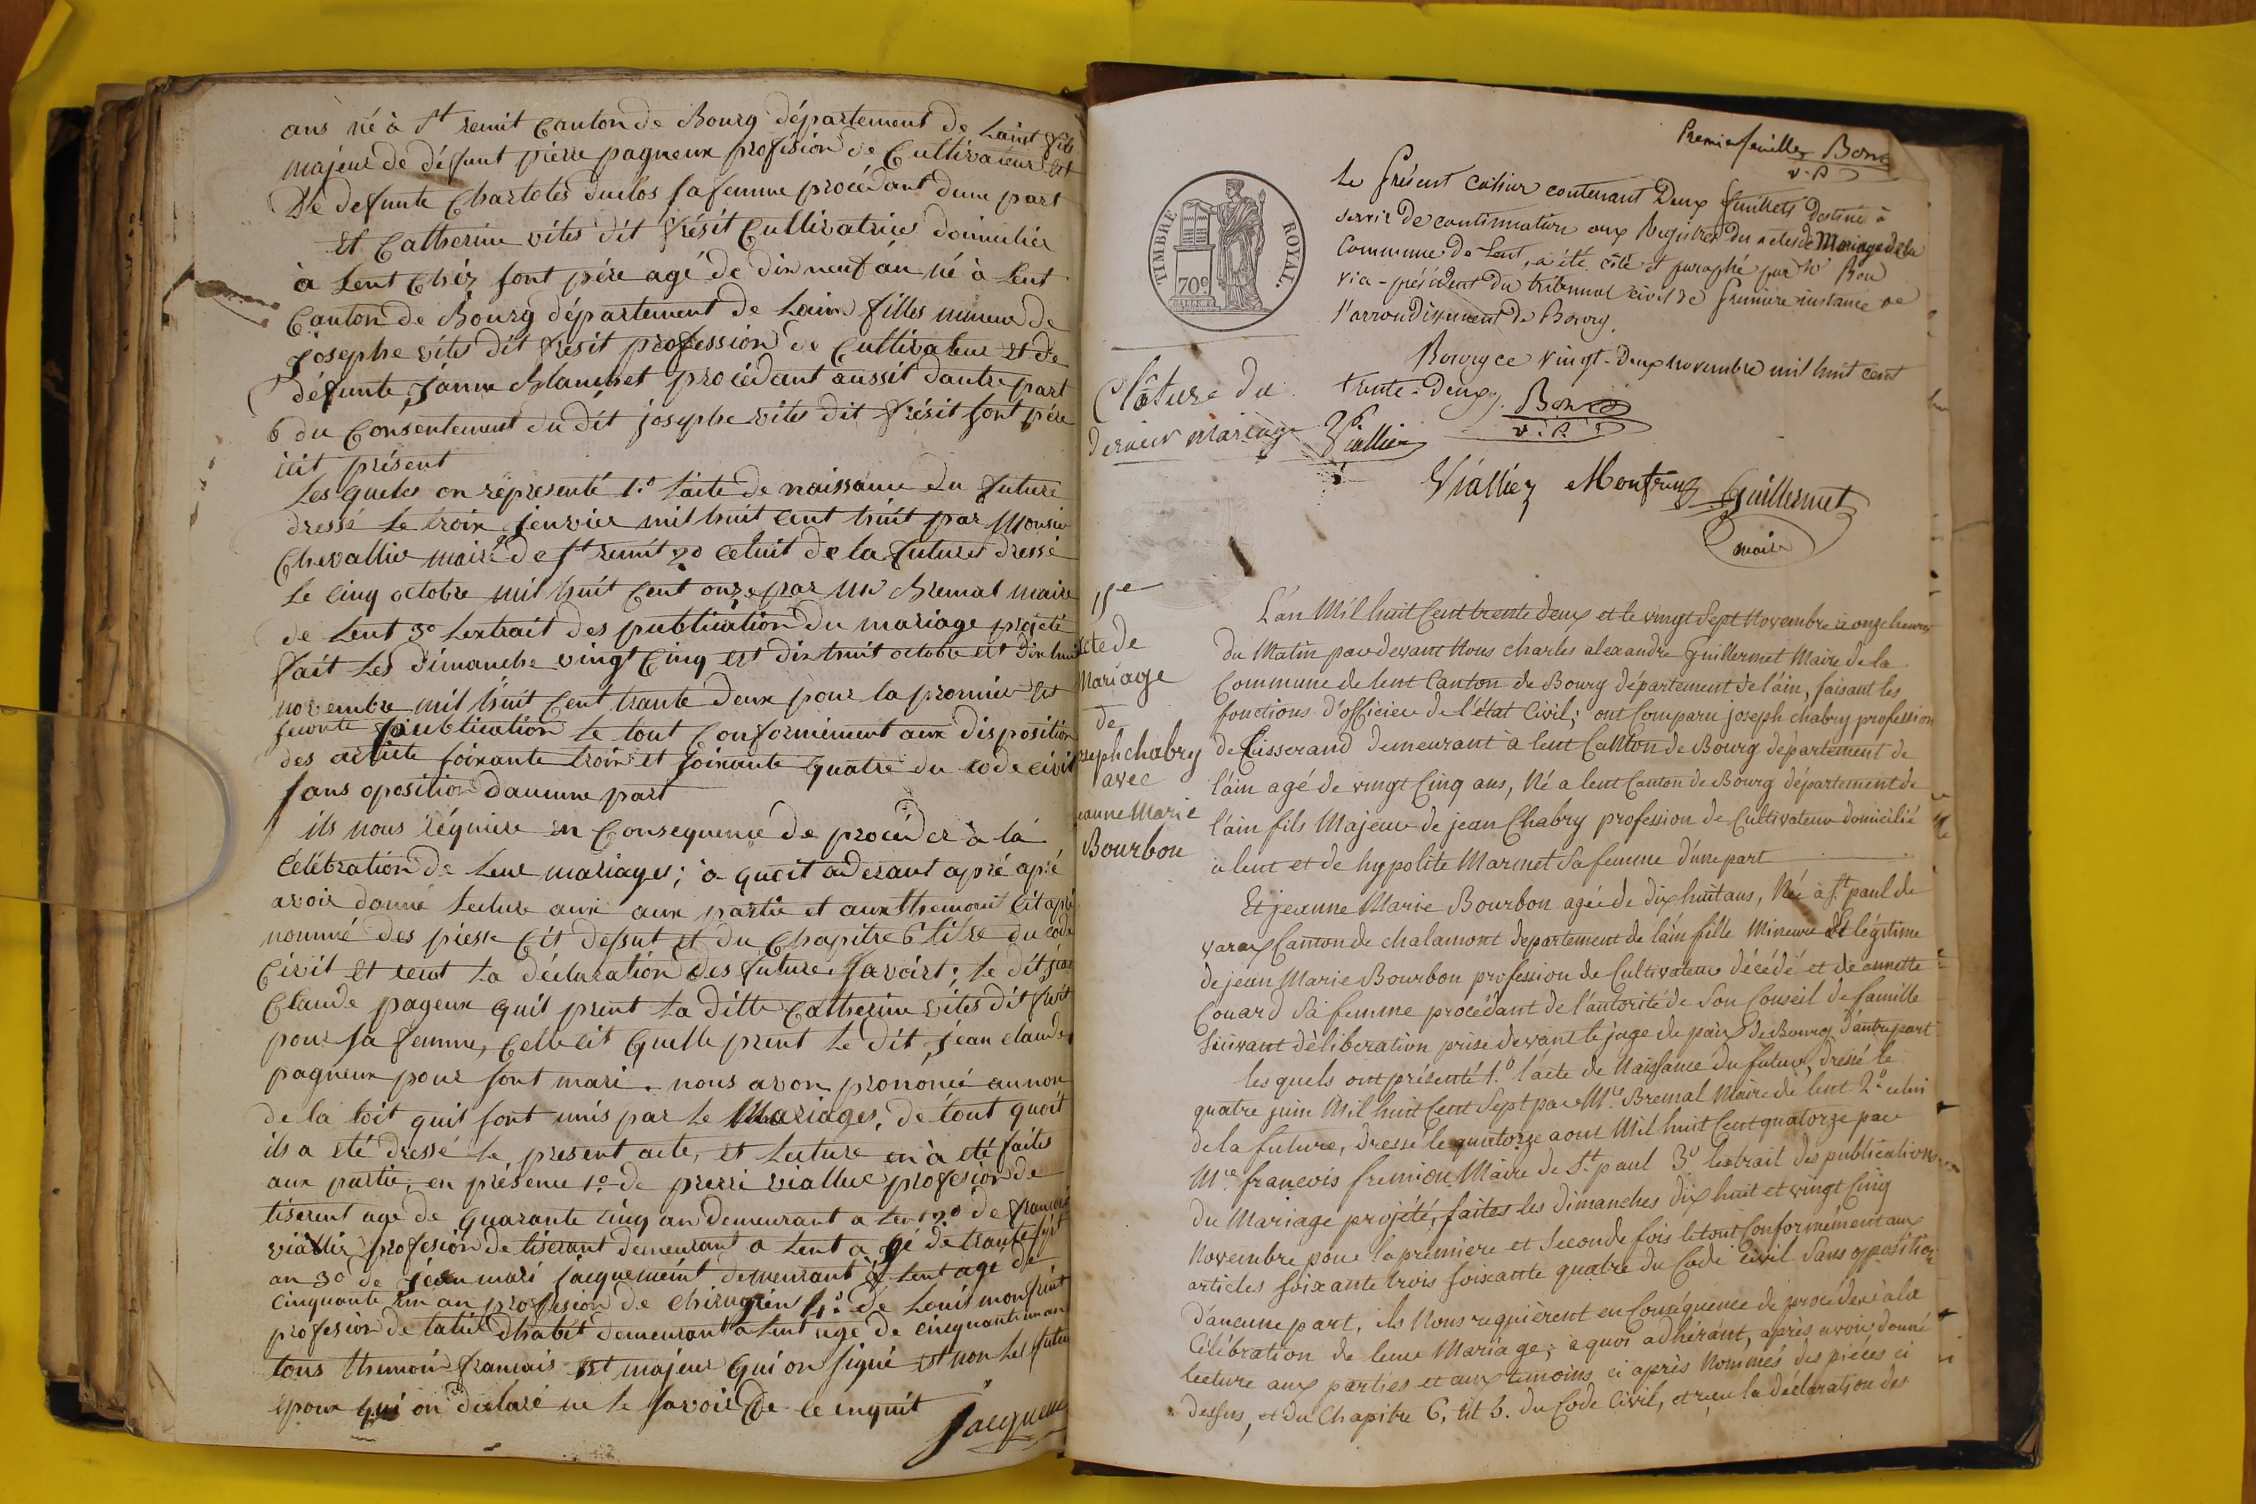 ans né à St remit Canton de Bourg département de Laint fils
majeur de défunt pierre pagneux profision de Cultivateur Et
De defunte Charlotes duclos sa femme procédant dune part
Et Catherine vites dit frésit Cultivatrice domiciliée
à Lent Chéz sont pére agé de dix neuf an né à Lent
Canton de Bourg département de Lain filles mineur de
Josephe vites dit frésit profession de Cultivateur et de
défunte Janne Blanchet procédant aussit dautre part
6 du Consentement du dit josephe vites dit frésit sont pére
icit présent
Les queles on représenté 1.o Lacte de naissance du future
dressé Le troix jenvier mil huit Cent huit par Monsieur
Chevallier maire de St remit 2o celuit de la future dressé
Le Cinq octobre mil huit Cent onze par Mr Bremal maire
de Lent 3o Lextrait des publication du mariage projeté
fait Les dimanche vingt Cinq Et dix huit octobre Et dix huit
novembre mil huit Cent trante deux pour la premier Et
seconte publication Le tout Conformément aux disposition
des article soixante troix et soixante quatre du code civil
sans oposition daucune part
ils nous réquiere en Consequence de procéder à la
Célébration de Leur mariages; à quoit aderant apré apré
avoir donné Lecture aux aux partie et aux themoint Cit apré
nommé des piesse Cit dessut et du Chapitre 6 titse du code
Civit Et recut La déclaration des future savoirt; Le dit jean
Claude pageux quit prent La ditte Catherine vites dit fresit
pour sa femme, Celle cit quelle prent Le dit jean claude
pagneux pour sont mari. nous avon prononcé aunon
de la loit quit sont unis par Le Mariages, de tout quoit
ils a eté dressé Le present acte, et Lecture en à eté faites
aux partie, en présence 1o de pierre viallier profesion de
tiserent age de quarante cinq an demeurant a Lent 2o de francois
viallir profesion de tiserant demeurant a Lent a gé de trante sept
an 3o de jean mari jacquemint demeurant à Lent age de
cinquante un an profesion de chirugien 4o de Louis monfrint
profesion de talieur dhabit demeurant a Lent age de cinquante un an
tous themoin francais Et majeur qui on signé Et non Les future
époux qui on déclaré ne le savoir de ce enquit
Jacqueme
Premier feuillet Bon
v.p
TIMBRE ROYAL.
70c
Le présent cahier contenant Deux feuillets destiné à
servir de continuation aux Registres des actes de Mariage de la
Commune de Lent, a été coté et paraphé par Nr Bon
vice-président du tribunal civil de première instance de
l'arrondissement de Bourg.
Bourg ce vingt-Deux novembre mil huit cent
trente-Deux. Bon
v.p.
Clôture du
dernier mariage
Viallier
Viallier Monfrin Guillermet
maire
15e
Acte de
Mariage
de
joseph chabry
avec
jeanne Marie
Bourbon
L'an Mil huit Cent trente deux et le vingt Sept Novembre à onze heures
du Matin par devant Nous charles alexandre Guillermet Maire de la
Commune de lent Canton de Bourg département de l'ain, faisant les
fonctions d'officier de l'état Civil; ont Comparu joseph chabry profession
de tisserand demeurant à lent Canton de Bourg département de
l'ain agé de vingt Cinq ans, Né a lent Canton de Bourg département de
l'ain fils Majeur de jean Chabry profession de Cultivateur domicilié
à lent et de hypolite Marmet Sa femme d'une part
Et jeanne Marie Bourbon agée de dix huit ans, Née à St paul de
varax Canton de chalamont departement de l'ain fille Mineure et légitime
de jean Marie Bourbon profession de Cultivateur décédé et de annette
Couard Sa femme procédant de l'autorité de Son Conseil de famille
Suivant délibération prise devant le juge de paix de Bourg d'autre part
les quels ont présenté 1.o l'acte de Naissance du futur, dressé le
quatre juin Mil huit Cent Sept par Mr Bremal Maire de lent 2.o celui
de la future, dressé le quatorze aout Mil huit Cent quatorze par
Mr. francois fremion Maire de St. paul 3.o lextrait des publications
du Mariage projété, faites les dimanches dix huit et vingt Cinq
Novembre pour la premiere et Seconde fois le tout Conformément aux
articles soixante trois soixante quatre du Code Civil Sans opposition
d'aucune part, ils Nous requièrent en Conséquence de procéder à la
Célébration de leur Mariage; à quoi adhérant, après avoir donné
lecture aux parties et aux témoins ci après Nommés des pièces ci
dessus, et du Chapitre 6, tit 5. du Code Civil, et reçu la déclaration des